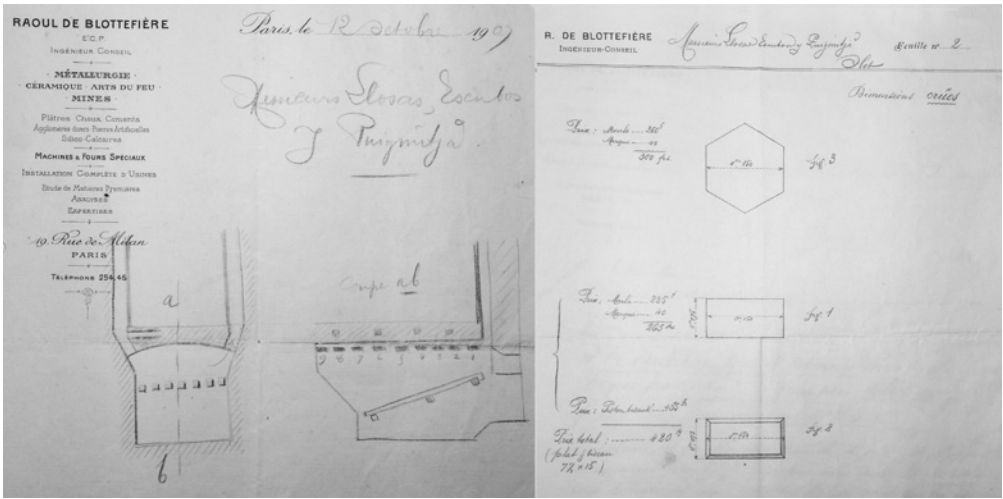 RAOUL DE BLOTTEFIÈRE
E.C.P.
INGÉNIEUR CONSEIL
MÉTALLURGIE
CÉRAMIQUE · ARTS DU FEU
MINES
Plâtres Chaux Ciments
Agglomérés divers Pierres Artificielles
Silico-Calcaires
MACHINES & FOURS SPÉCIAUX
INSTALLATION COMPLÈTE D'USINES
Etude de Matières Premières
ANALYSES
EXPERTISES
19, Rue de Milan
PARIS
TÉLÉPHONE 254.45
Paris, le 12 octobre 1907
Messieurs Llosas, Escubos
y Puigmitja
a
b
coupe ab
9 8 7 6 5 4 3 2 1
R. DE BLOTTEFIÈRE
INGÉNIEUR-CONSEIL
Messieurs Llosas Escubos y Puigmitja
Olot
feuille nº 2
Dimensions crües
Prix : Moule
300 frs
fig 3
Prix : Moule 225 f
Marque 40
fig 1
Prix :
Prix total : 420 f
fig 2